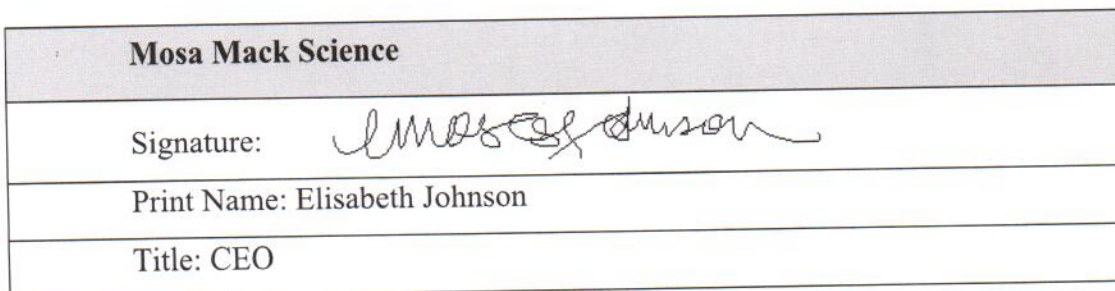 Mosa Mack Science
Signature:
Print Name: Elisabeth Johnson
Title: CEO